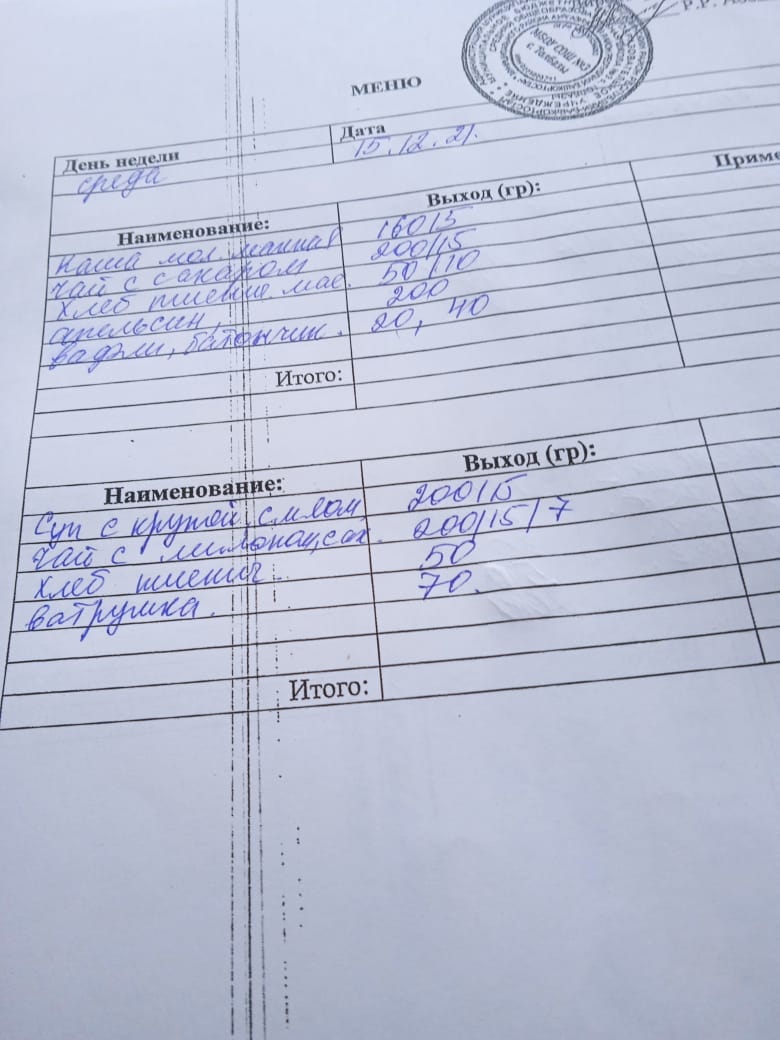 Р.Р.
МБОУ СОШ №3
с. Толбазы
МЕНЮ
День недели Дата
среда 15.12.21.
Наименование: Выход (гр): Приме
Каша мол. манная 160/5
чай с сахаром 200/15
хлеб пшенич. мас. 50/10
апельсин, 200
вафли, батончик. 20, 40
Итого:
Наименование: Выход (гр):
Суп с крупой, с мясом 200/15
чай с лимоном, сах. 200/15/7
хлеб пшенич. 50
ватрушка. 70.
Итого: